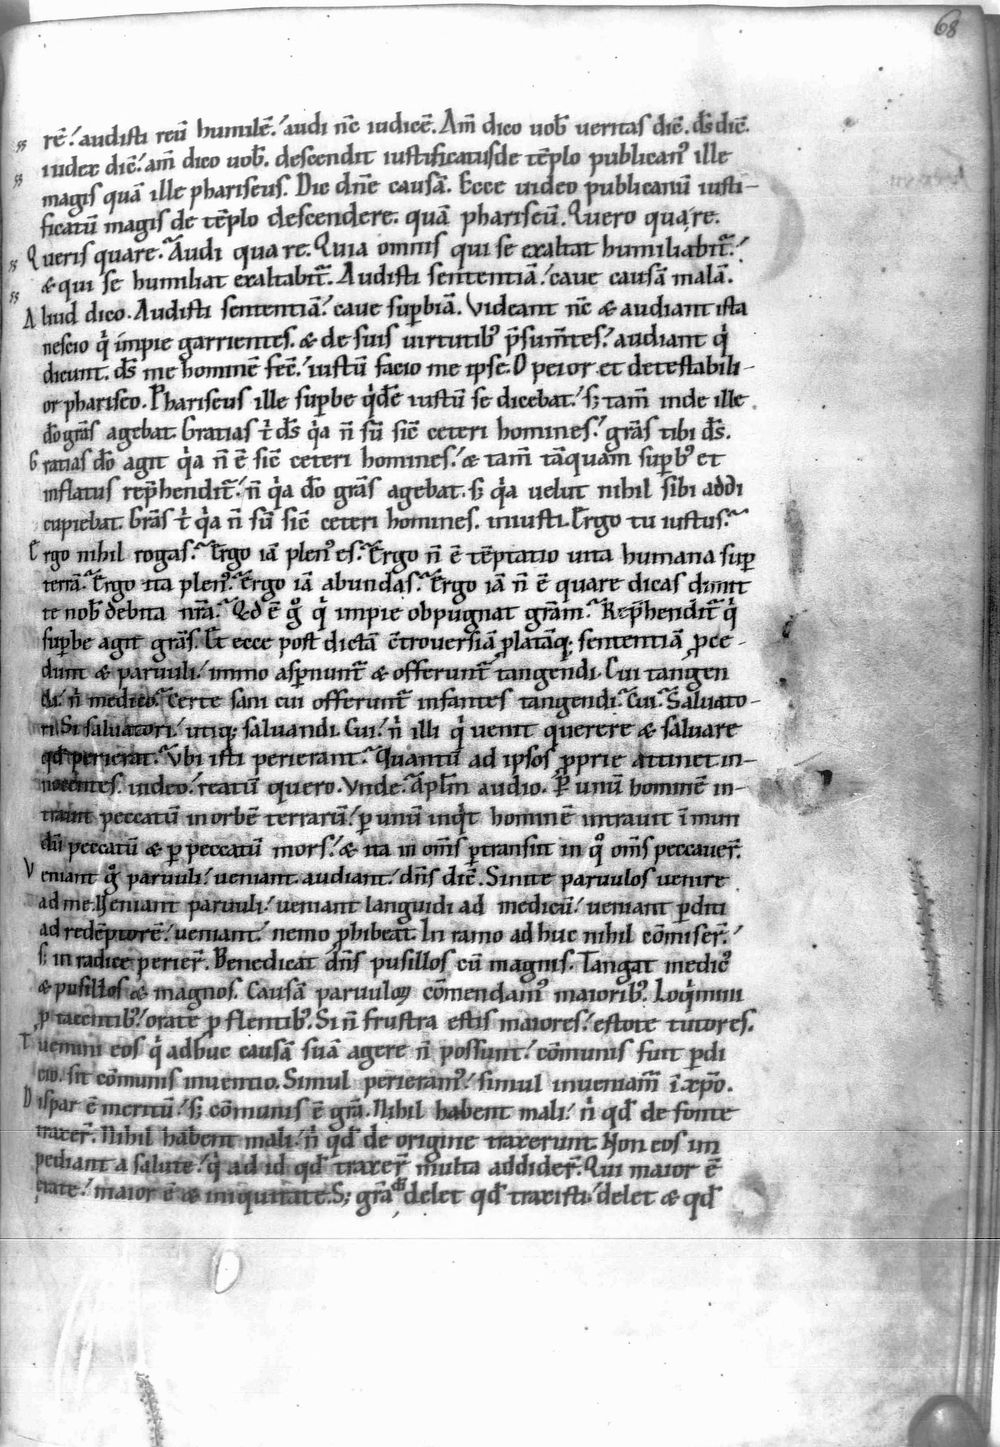 68
rē. audisti reū humilē. audi nc̄ iudicē. Am̄ dico uob̄ ueritas dic̄. ds̄ dic̄.
iudex dic̄. am̄ dico uob̄. descendit iustificatus de tēplo publican⁹ ille
magis quā ille phariseus. Dic dn̄e causā. Ecce uideo publicanū iusti-
ficatū magis de tēplo descendere. quā phariseū. Quero quare.
Queris quare. Audi quare. Quia omnis qui se exaltat humiliabit̄.
& qui se humiliat exaltabit̄. Audisti sententiā. caue causā malā.
Aliud dico. Audisti sententiā. caue suꝑbiā. Videant nc̄ & audiant ista
nescio q̇ impie garrientes. & de suis uirtutib⁹ p̄sum̄tes. audiant q̇
dicunt. ds̄ me hominē fec̄. iustū facio me ipse. O peior et detestabili-
or phariseo. Phariseus ille suꝑbe q̇dē iustū se dicebat. s; tam̄ inde ille
dō grās agebat. Gratias ṫ ds̄ q̇a n̄ sū sic̄ ceteri homines. grās tibi ds̄.
Gratias dō agit q̇a n̄ ē sic̄ ceteri homines. & tam̄ tāquam suꝑb⁹ et
inflatus rep̄hendit̄. n̄ q̇a dō grās agebat. s; q̇a uelut nihil sibi addi
cupiebat. Grās ṫ q̇a n̄ sū sic̄ ceteri homines. iniusti. Ergo tu iustus.
Ergo nihil rogas. Ergo iā plen⁹ es. Ergo n̄ ē tēptatio uita humana suꝑ
terrā. Ergo ita plen⁹. Ergo iā abundas. Ergo iā n̄ ē quare dicas dimit
te nob̄ debita nr̄a. Qd ē g̊ q̇ impie obpugnat grām. Rep̄hendit̄ q̇
suꝑbe agit grās. Et ecce post dictā c̄trouersiā ꝓlatāq; sententiā ꝓce-
dunt & paruuli. immo asꝑnunt̄ & offerunt̄ tangendi. Cui tangen
di. n̄ medico. Certe sani cui offerunt̄ infantes tangendi. Cui. Saluato-
ri. Si saluatori. utiq; saluandi. Cui. ṅ illi q̇ uenit querere & saluare
qd̄ perierat. Vbi isti perierant. Quantū ad ipsos ꝓprie attinet in-
nocentes. uideo. reatū quero. Vnde. Apl̄m audio. Ꝑ unū hominē in-
trauit peccatū in orbē terrarū. ꝑ unū inq̇t hominē intrauit ī mun
dū peccatū & ꝑ peccatū mors. & ita in om̄s ꝑtransiit in q̊ om̄s peccauer̄.
Veniant g̊ paruuli. ueniant. audiant. dn̄s dic̄. Sinite paruulos uenire
ad me. Veniant paruuli. ueniant languidi ad medicū. ueniant ꝑditi
ad redēptorē. ueniant. nemo ꝓhibeat. In ramo adhuc nihil cōmiser̄.
s; in radice perier̄. Benedicat dn̄s pusillos cū magnis. Tangat medic⁹
& pusillos & magnos. Causā paruuloꝝ cōmendam⁹ maiorib⁹. Loq̇mini
ꝓ tacentib⁹. orate ꝓ flentib⁹. Si n̄ frustra estis maiores. estote tutores.
Tuemini eos q̇ adhuc causā suā agere n̄ possunt. cōmunis fuit ꝑdi
cio. sit cōmunis inuentio. Simul perieram⁹. simul inueniam̄ ī xp̄o.
Dispar ē meritū. s; cōmunis ē grā. Nihil habent mali. ṅ qd̄ de fonte
traxer̄. Nihil habent mali. ṅ qd̄ de origine traxerunt. Non eos im
pediant a salute. q̇ ad id qd̄ traxer̄ multa addider̄. Qui maior ē
etate. maior ē & iniquitate. S; grā di delet qd̄ traxisti. delet & qd̄